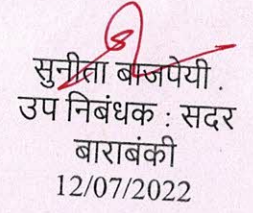 सुनीता बाजपेयी .
उप निबंधक : सदर
बाराबंकी
12/07/2022